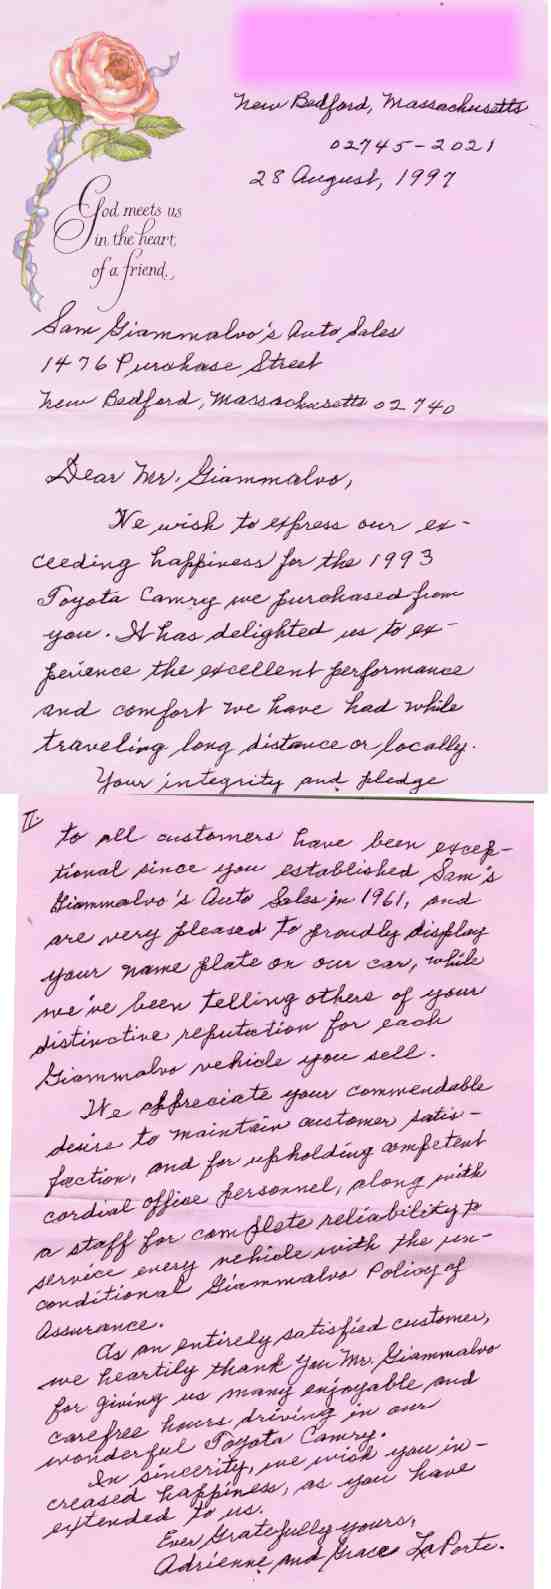 New Bedford, Massachusetts
02745-2021
28 August, 1997
God meets us
in the heart
of a friend.
Sam Giammalvo's Auto Sales
1476 Purchase Street
New Bedford, Massachusetts 02740
Dear Mr. Giammalvo,
We wish to express our ex-
ceeding happiness for the 1993
Toyota Camry we purchased from
you. It has delighted us to ex-
perience the excellent performance
and comfort we have had while
traveling long distance or locally.
Your integrity and pledge
II.
to all customers have been excep-
tional since you established Sam's
Giammalvo's Auto Sales in 1961, and
are very pleased to proudly display
your name plate on our car, while
we've been telling others of your
distinctive reputation for each
Giammalvo vehicle you sell.
We appreciate your commendable
desire to maintain customer satis-
faction, and for upholding competent
cordial office personnel, along with
a staff for complete reliability to
service every vehicle with the un-
conditional Giammalvo Policy of
Assurance.
As an entirely satisfied customer,
we heartily thank you Mr. Giammalvo
for giving us many enjoyable and
carefree hours driving in our
wonderful Toyota Camry.
In sincerity, we wish you in-
creased happiness, as you have
extended to us.
Ever Gratefully yours,
Adrienne and Grace LaPorte.